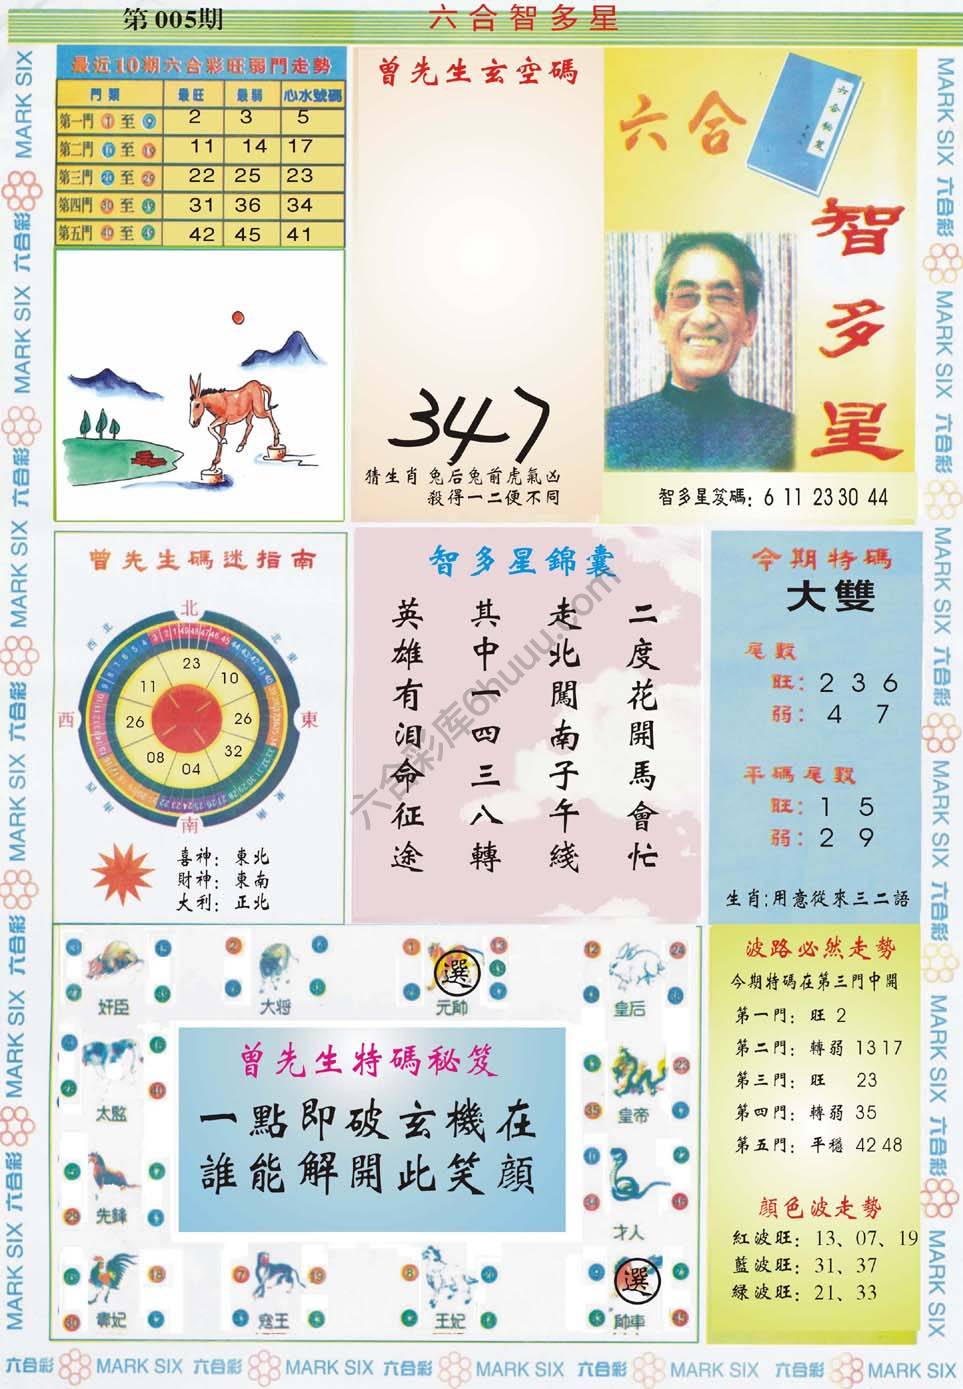 第 005期
六合智多星
最近10期六合彩旺弱門走勢
門類 最旺 最弱 心水號碼
第一門 1 至 9 2 3 5
第二門 10 至 19 11 14 17
第三門 20 至 29 22 25 23
第四門 30 至 39 31 36 34
第五門 40 至 49 42 45 41
曾先生玄空碼
347
猜生肖 兔后兔前虎氣凶
殺得一二便不同
六合
六合秘笈
智多星
智多星笈碼: 6 11 23 30 44
曾先生碼迷指南
北
西北
東北
西
東
南
23
10
11
26
26
08
32
04
喜神: 東北
財神: 東南
大利: 正北
智多星錦囊
二度花開馬會忙
走北闖南子午綫
其中一四三八轉
英雄有淚命征途
今期特碼
大雙
尾數
旺: 2 3 6
弱: 4 7
平碼尾數
旺: 1 5
弱: 2 9
生肖:用意從來三二語
奸臣
大将
選
元帥
皇后
太監
皇帝
先鋒
才人
妃
寇王
王妃
選
帥車
曾先生特碼秘笈
一點即破玄機在
誰能解開此笑顔
波路必然走勢
今期特碼在第三門中開
第一門: 旺 2
第二門: 轉弱 13 17
第三門: 旺 23
第四門: 轉弱 35
第五門: 平穩 42 48
顔色波走勢
紅波旺: 13、07、19
藍波旺: 31、37
綠波旺: 21、33
六合彩库6huuu.com
MARK SIX 六合彩 MARK SIX 六合彩 MARK SIX 六合彩 MARK SIX 六合彩 MARK SIX 六合彩 MARK SIX
MARK SIX 六合彩 MARK SIX 六合彩 MARK SIX 六合彩 MARK SIX 六合彩 MARK SIX 六合彩 MARK SIX
六合彩 MARK SIX 六合彩 MARK SIX 六合彩 MARK SIX 六合彩 MARK SIX 六合彩 MARK SIX